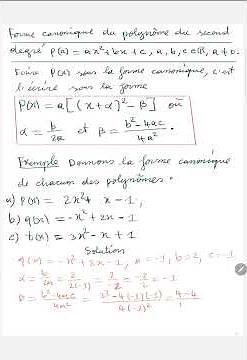 Forme canonique du polynôme du second
degré P(x) = ax²+bx+c, a,b,c∈ℝ, a≠0.
Ecrire P(x) sous la forme canonique, c'est
l'écrire sous la forme
P(x) = a[(x+α)² - β] où
α = b/2a et β = b²-4ac/4a² .
Exemple Donnons la forme canonique
de chacun des polynômes :
a) P(x) = 2x² + x - 1 ,
b) q(x) = -x² + 2x - 1
c) t(x) = 3x² - x + 1
Solution
q(x) = -x² + 2x - 1, a = -1, b = 2, c = -1
α = b/2a = 2/2(-1) = 2/-2 = -2/2 = -1
β = b²-4ac/4a² = 2²-4(-1)(-1)/4(-1)² = 4-4